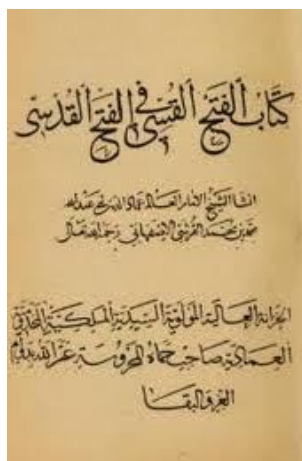 كتاب الفتح القسي في الفتح القدسي
انشا الشيخ الامام العلامة عماد الدين عبد الله
محمد بن محمد القرشي الاصفهاني رحمه الله تعالى
الخزانة العالية المولوية السيدية الملكية
العمادية صاحب حماه المحروسة عمر الله
العز والبقا